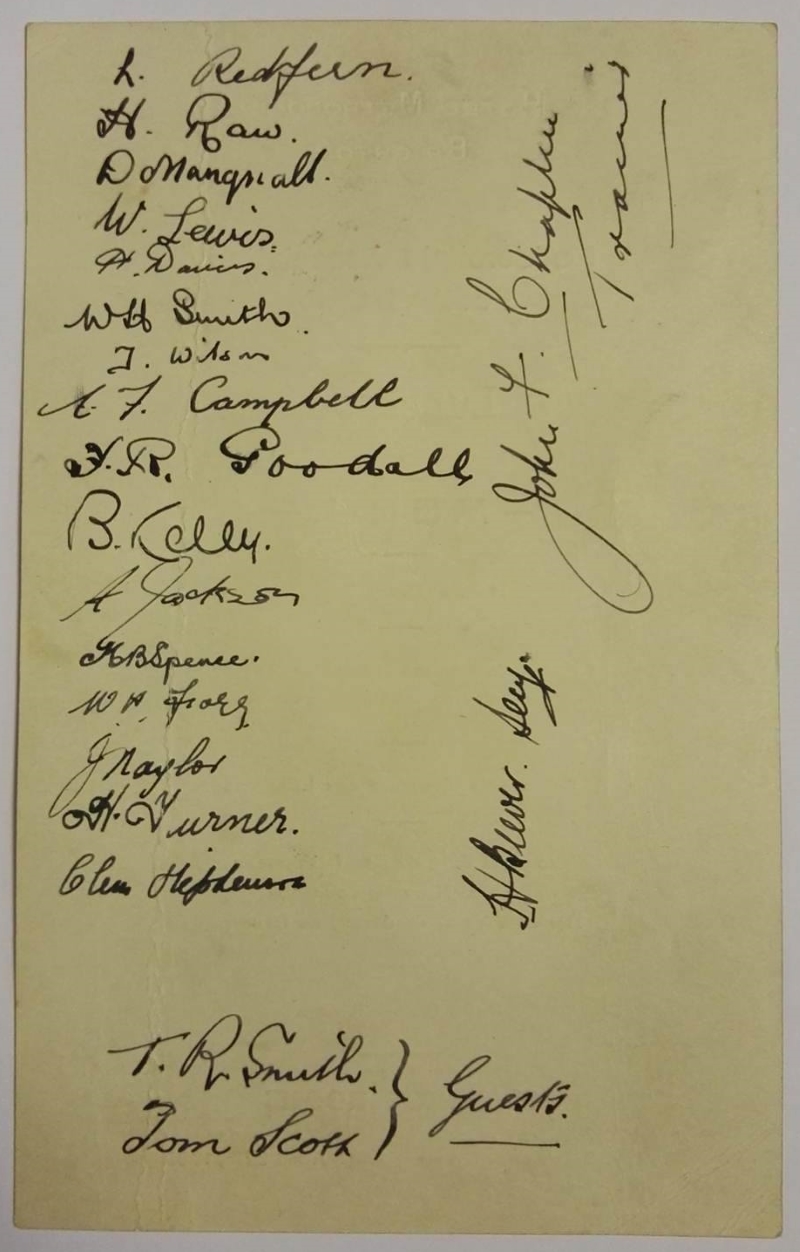 L. Redfern.
H. Raw.
D Mangnall.
W. Lewis.
H. Davies.
WH Smith.
J. Wilson
A. F. Campbell
F. R. Goodall
B. Kelly.
A Jackson
M B Spence.
W H. Fogg
J Naylor
H. Turner.
Clem Stephenson
John F. Chaplin
Trainer
H Beever. Secy.
T. R. Smith.
Tom Scott
Guests.